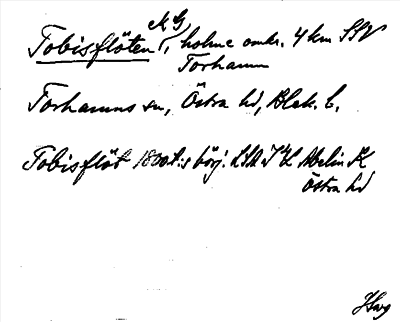 Tobisflöten, KG, holme omkr. 4 km SSV
Torhamn
Torhamns sn, Östra hd, Blek. l.
Tobisflöt 1800t:s börj. LSA Abelin K
Östra hd